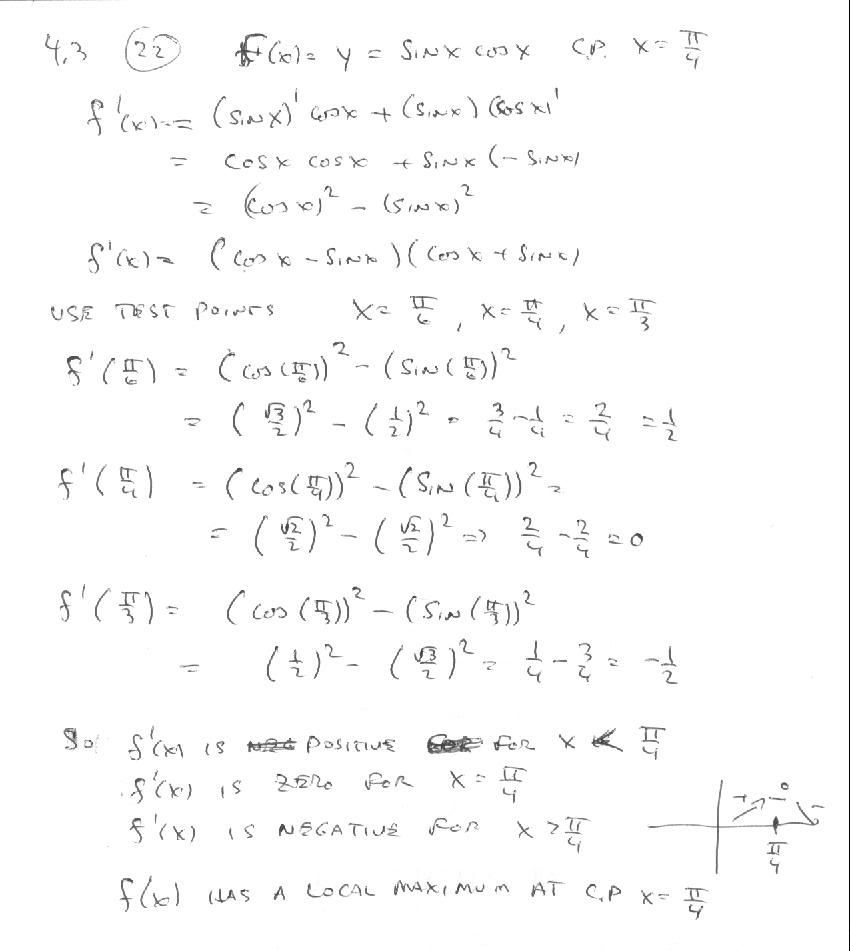 4.3 (22) f(x) = y = SINX COSX C.P. X = π/4
f'(x) = (SINX)' COSX + (SINX)(COSX)'
= COSX COSX + SINX (-SINX)
= (COSX)² - (SINX)²
f'(x) = (COSX - SINX)(COSX + SINX)
USE TEST POINTS X = π/6, X = π/4, X = π/3
f'(π/6) = (COS(π/6))² - (SIN(π/6))²
= (√3/2)² - (1/2)² = 3/4 - 1/4 = 2/4 = 1/2
f'(π/4) = (COS(π/4))² - (SIN(π/4))² =
= (√2/2)² - (√2/2)² => 2/4 - 2/4 = 0
f'(π/3) = (COS(π/3))² - (SIN(π/3))²
= (1/2)² - (√3/2)² = 1/4 - 3/4 = -1/2
SO f'(x) IS POSITIVE FOR X < π/4
f'(x) IS ZERO FOR X = π/4
f'(x) IS NEGATIVE FOR X > π/4
+ 0 -
π/4
f(x) HAS A LOCAL MAXIMUM AT C.P X = π/4